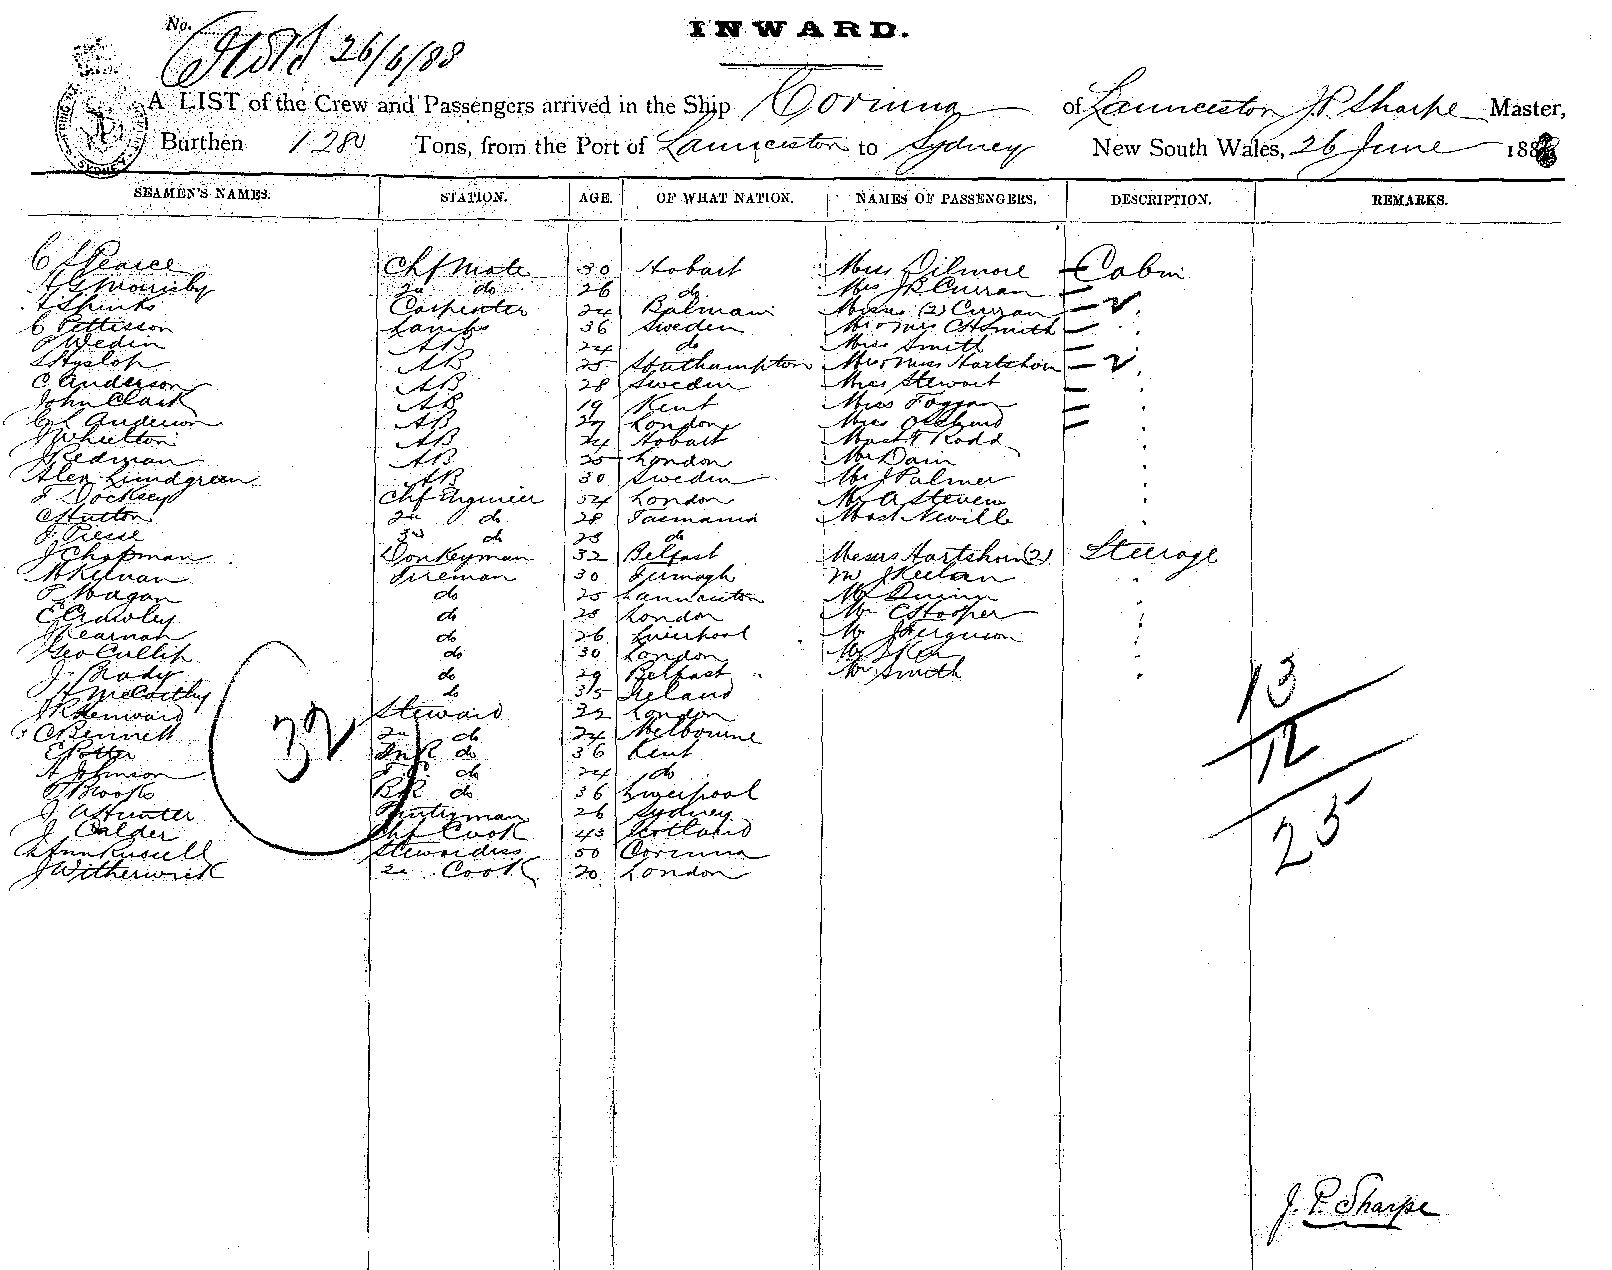 No.
26/6/88
INWARD.
A LIST of the Crew and Passengers arrived in the Ship Corinna of Launceston J.P. Sharpe Master,
Burthen 1280 Tons, from the Port of Launceston to Sydney New South Wales, 26 June 188
SEAMEN'S NAMES. STATION. AGE. OF WHAT NATION. NAMES OF PASSENGERS. DESCRIPTION. REMARKS.
C S Pearce Chf Mate 30 Hobart Miss Dilmore Cabin
2d do 26 do Mrs J R Curran
A Spinks Carpenter 24 Balmain (2) Curran
C Pettisson Lamps 36 Sweden C H Smith
P Wedin AB 24 do Miss Smith
S Hyslop AB 25 Southampton Hartshorn
C Anderson AB 28 Sweden Miss Stewart
John Clark AB 19 Kent Miss Foggan
Anderson AB 27 London Miss
J Whelton AB 24 Hobart Rodd
J Redman AB 25 London Mr Dain
Alex Lundgreen AB 30 Sweden Mr J Palmer
F Docksey Chf Engineer 54 London Mr A Steven
C Hutton 2d do 28 Tasmania Mast Neville
J Piesse 3rd do 23 do
J Chapman Donkeyman 32 Belfast Messrs Hartshorn (2) Steerage
M Keenan Fireman 30 J Keelan
P Magan do 25 Launceston Mr Quinn
E Crawley do 28 London Mr C Hooper
J Kearnan do 26 Liverpool Mr J Ferguson
Geo Cullip do 30 London Mr
J Brady do 29 Belfast Mr Smith
H McCarthy do 35 Ireland
J R Henward Steward 32 London
C Bennett 2d do 24 Melbourne
E Potter do 36 Kent
A Johnson do 24 do
T Brooks B.R. do 36 Liverpool
J A Hunter Pantryman 26 Sydney
J Calder Chf Cook 43 Scotland
Ann Russell Stewardess 50 Corinna
J Witherwick 2d Cook 20 London
32
13
12
25
J. P. Sharpe